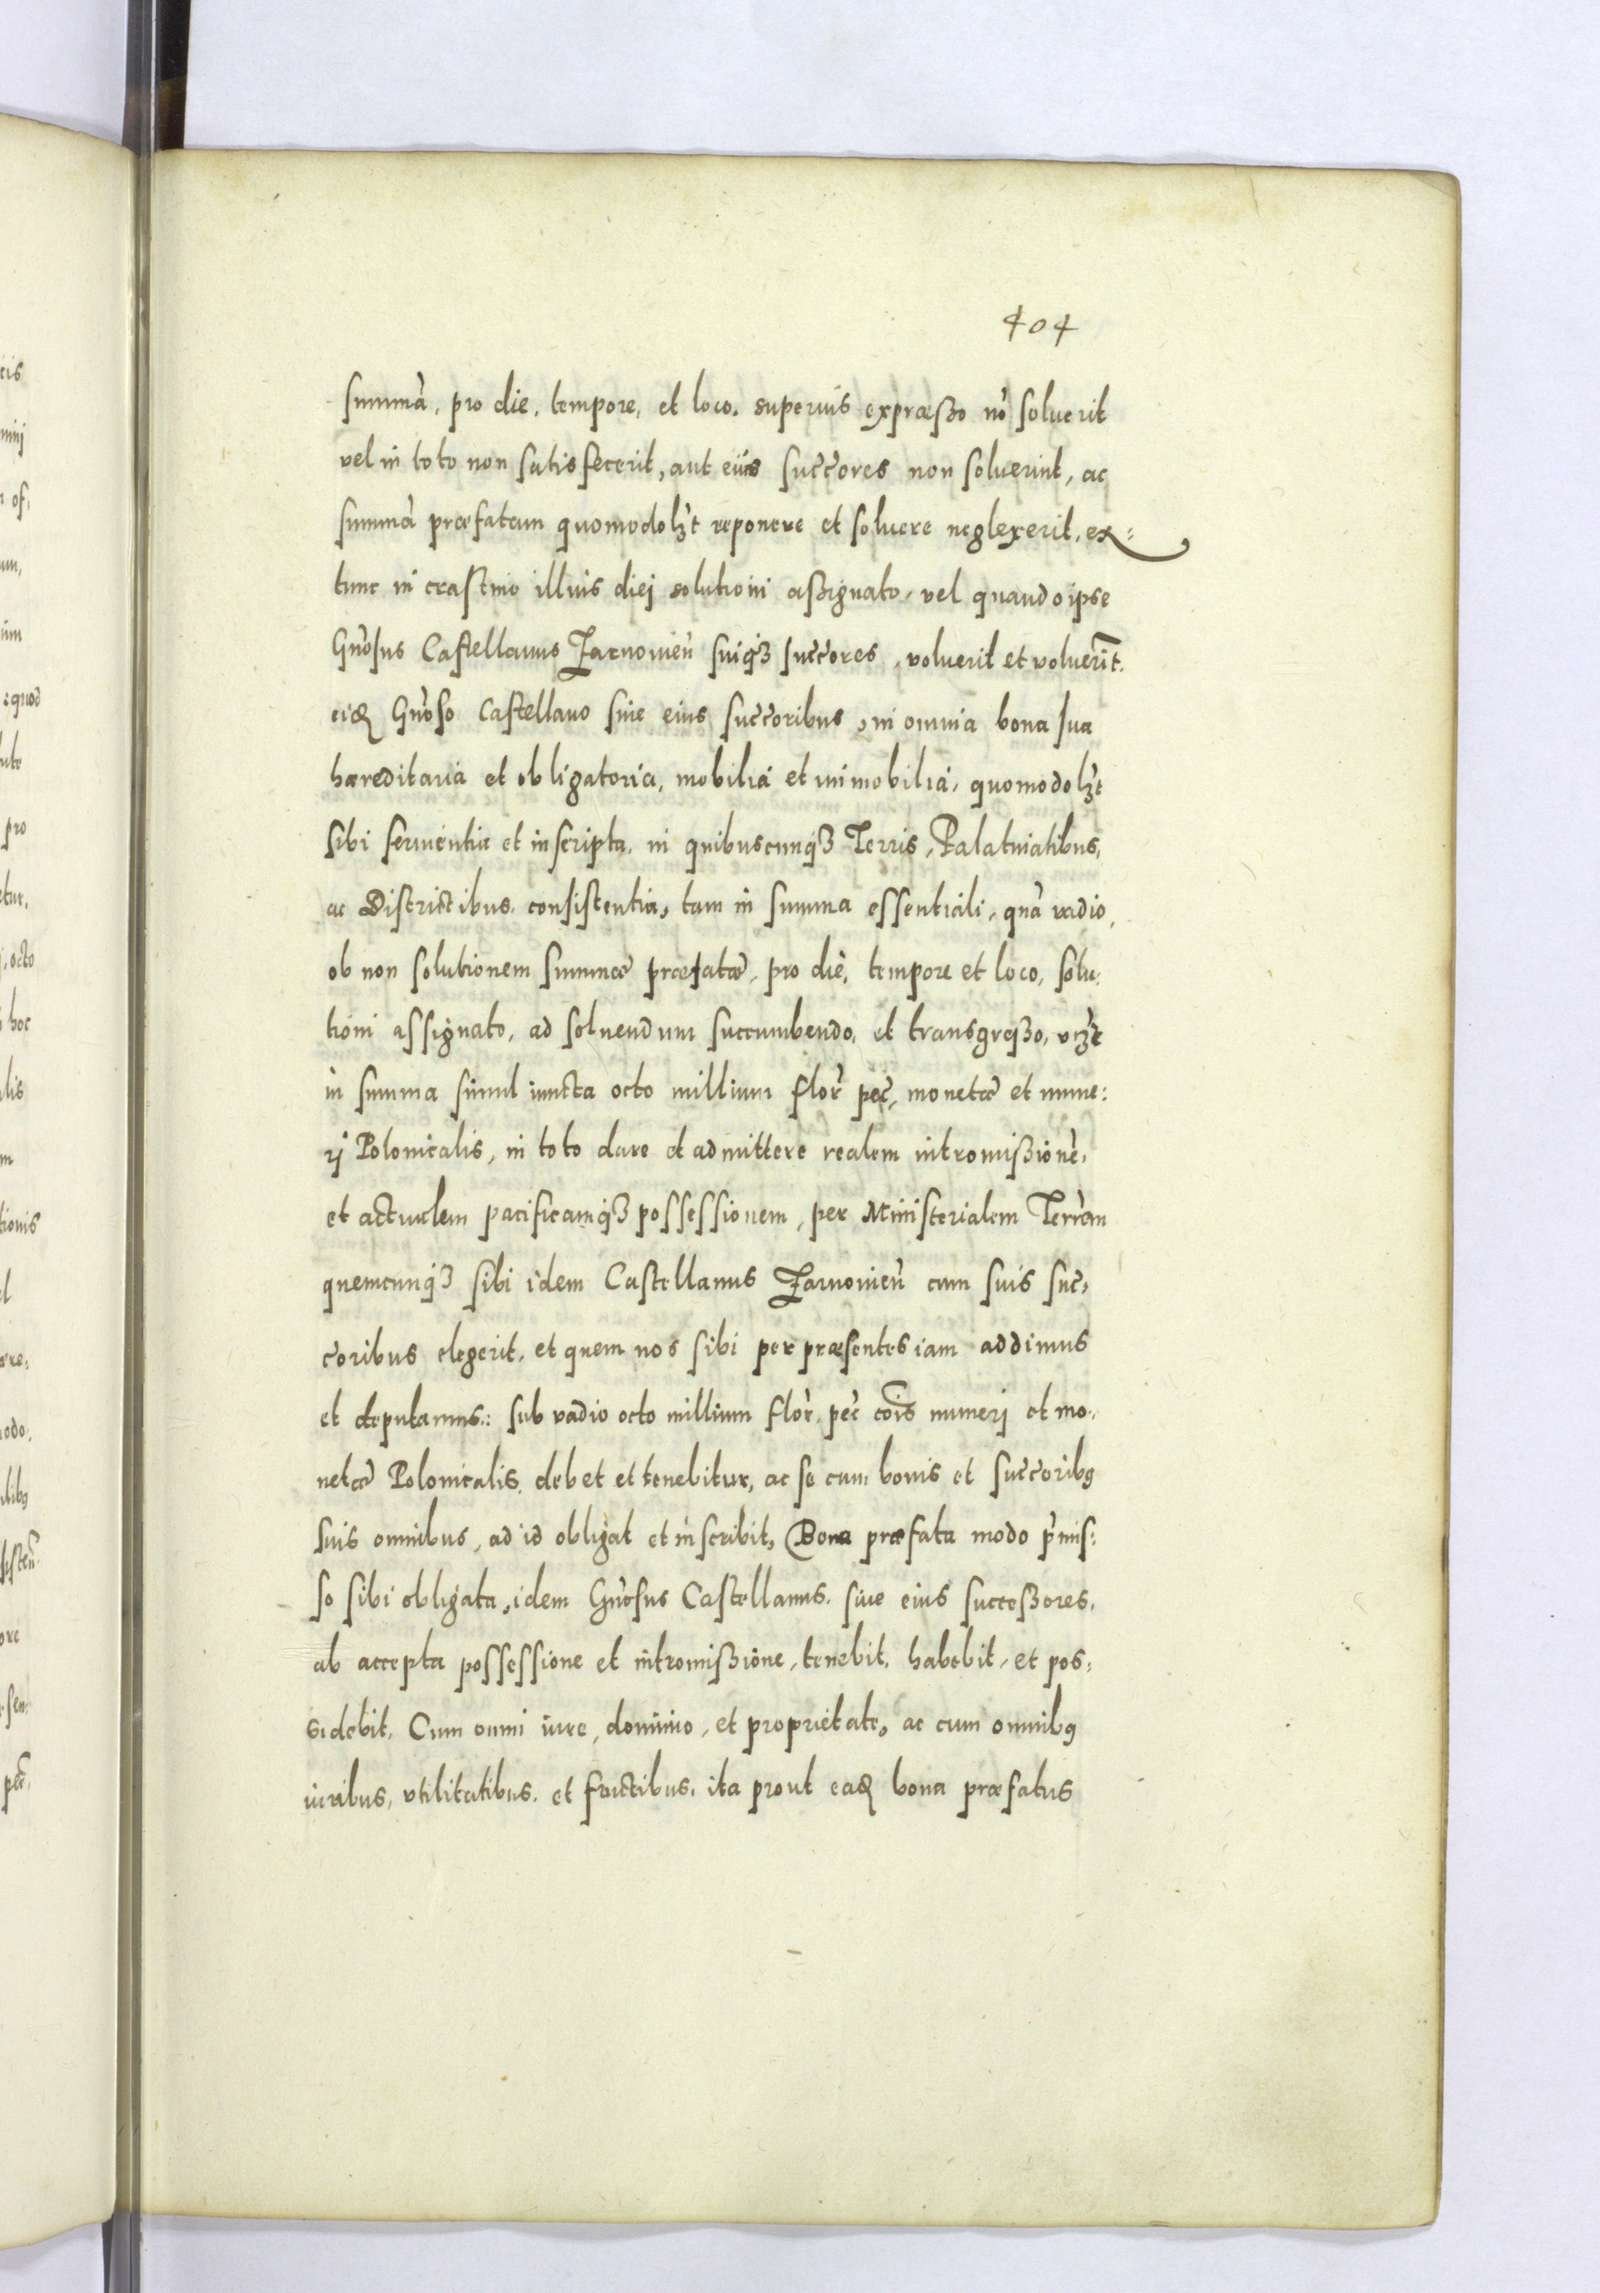 404
summā, pro die, tempore, et loco, superius expræsso nō soluerit
vel in toto non satisfecerit, aut eius succores non soluerint, ac
summā præfatam quomodolȝt reponere et soluere neglexerit, ex=
tunc in crastino illius diej solutioni assignato, vel quando ipse
Gnōsus Castellanus Zarnouien̄ suiqȝ succores, voluerit et voluerīt.
eidē Gnōso Castellano siue eius succoribus, in omnia bona sua
hæreditaria et obligatoria, mobilia et immobilia, quomodolȝt
sibi seruientia et inscripta, in quibuscunqȝ Terris, Palatinatibus,
ac Districtibus consistentia, tam in summa essentiali, quā vadio,
ob non solutionem summæ præfatæ, pro die, tempore et loco, solu-
tioni assignato, ad soluendum succumbendo, et transgresso, vȝt
in summa simul iuncta octo millium flor̄ pec̄, monetæ et nume:
rj Polonicalis, in toto dare et admittere realem intromissionē,
et actualem pacificamqȝ possessionem, per Ministerialem Terrām
quemcunqȝ sibi idem Castellanus Zarnouien̄ cum suis suc-
coribus elegerit, et quem nos sibi per præsentes iam addimus
et deputamus: sub vadio octo millium flor̄, pec̄ cōis numerj et mo-
netæ Polonicalis, debet et tenebitur, ac se cum bonis et succoribȝ
suis omnibus, ad id obligat et inscribit, Bona præfata modo p̄mis:
so sibi obligata, idem Gnōsus Castellanus, siue eius successores,
ab accepta possessione et intromissione, tenebit, habebit, et pos-
sidebit, Cum omni iure, dominio, et proprietate, ac cum omnibȝ
iuribus, vtilitatibus, et fructibus, ita prout eadē bona præfatus